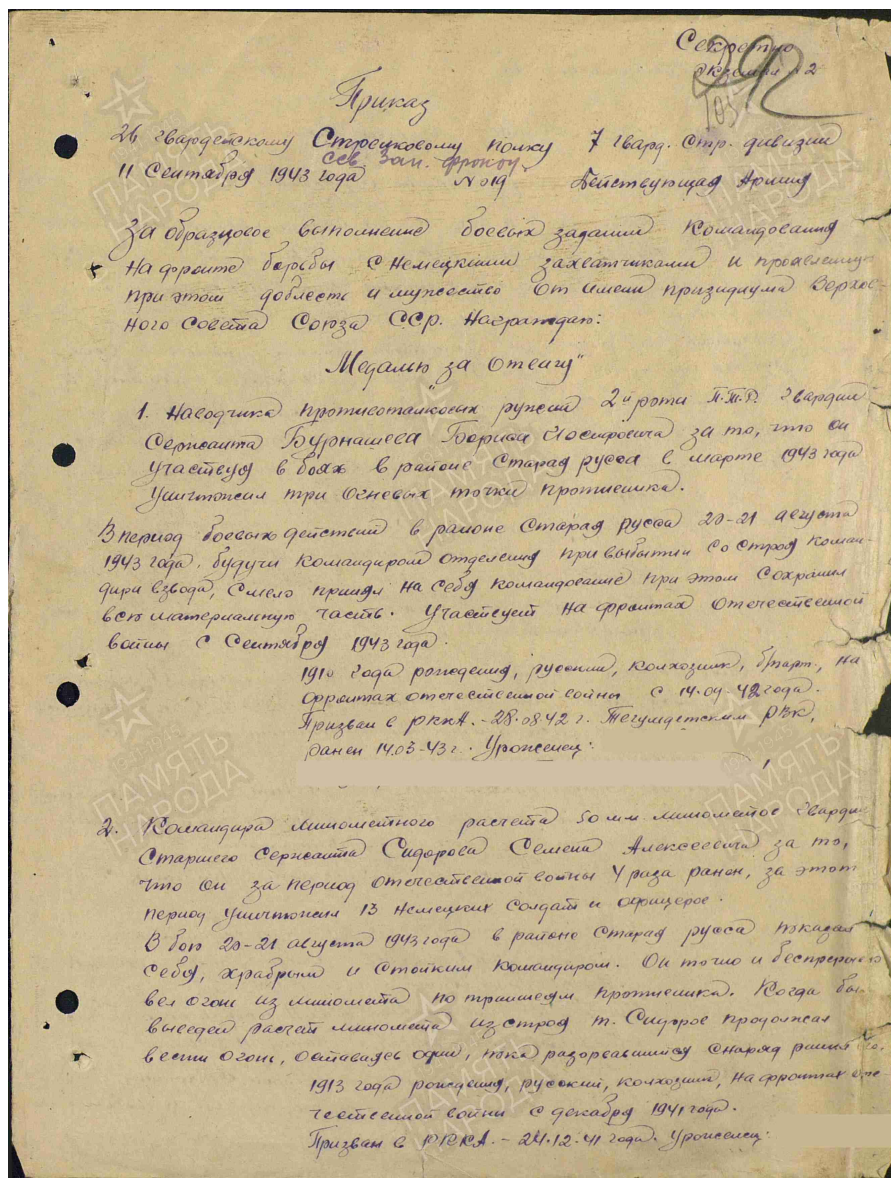 Секретно
Экземпл. 2
292
Приказ
26 гвардейскому Стрелковому полку 7 гвард. Стр. дивизии
Сев. Зап. фронту.
11 Сентября 1943 года № 019 Действующая Армия
За образцовое выполнение боевых заданий Командования
на фронте борьбы с немецкими захватчиками и проявленную
при этом доблесть и мужество от имени призидиума Верхов-
ного совета Союза ССР. Награждаю:
Медалью „За Отвагу"
1. Наводчика противотанковых ружей 2й роты П.Т.Р. Гвардии
Сержанта Бурнашева Бориса Иосифовича за то, что он
участвуя в боях в районе Старая русса в марте 1943 года
Уничтожил три огневых точки противника.
В период боевых действий в районе Старая русса 20-21 августа
1943 года. будучи командиром отделения при выбытии со строя коман-
дира взвода, смело принял на себя командование при этом сохранил
всю материальную часть. Участвует на фронтах Отечественной
войны с Сентября 1943 года.
1910 года рождения, русский, колхозник, б/парт., на
фронтах отечественной войны с 14.09.42 года.
Призван в РККА. - 28.08.42 г. Тегульдетским РВК,
ранен 14.03-43 г. Уроженец:
2. Командира минометного расчета 50 мм. минометов Гвардии
Старшего Сержанта Сидорова Семена Алексеевича за то,
что он за период отечественной войны 4 раза ранен, за этот
период уничтожил 13 немецких солдат и офицеров.
В бою 20-21 августа 1943 года в районе Старая русса показал
себя, храбрым и стойким командиром. Он точно и беспрерывно
вел огонь из миномета по траншеям противника. Когда был
выведен расчет миномета из строя т. Сидоров продолжал
вести огонь, оставаясь один, пока разорвавшийся снаряд ранил его.
1913 года рождения, русский, колхозник, на фронтах оте-
чественной войны с декабря 1941 года.
Призван в РККА. - 24.12.41 года. Уроженец:
ПАМЯТЬ НАРОДА
ПАМЯТЬ НАРОДА
ПАМЯТЬ НАРОДА
ПАМЯТЬ НАРОДА